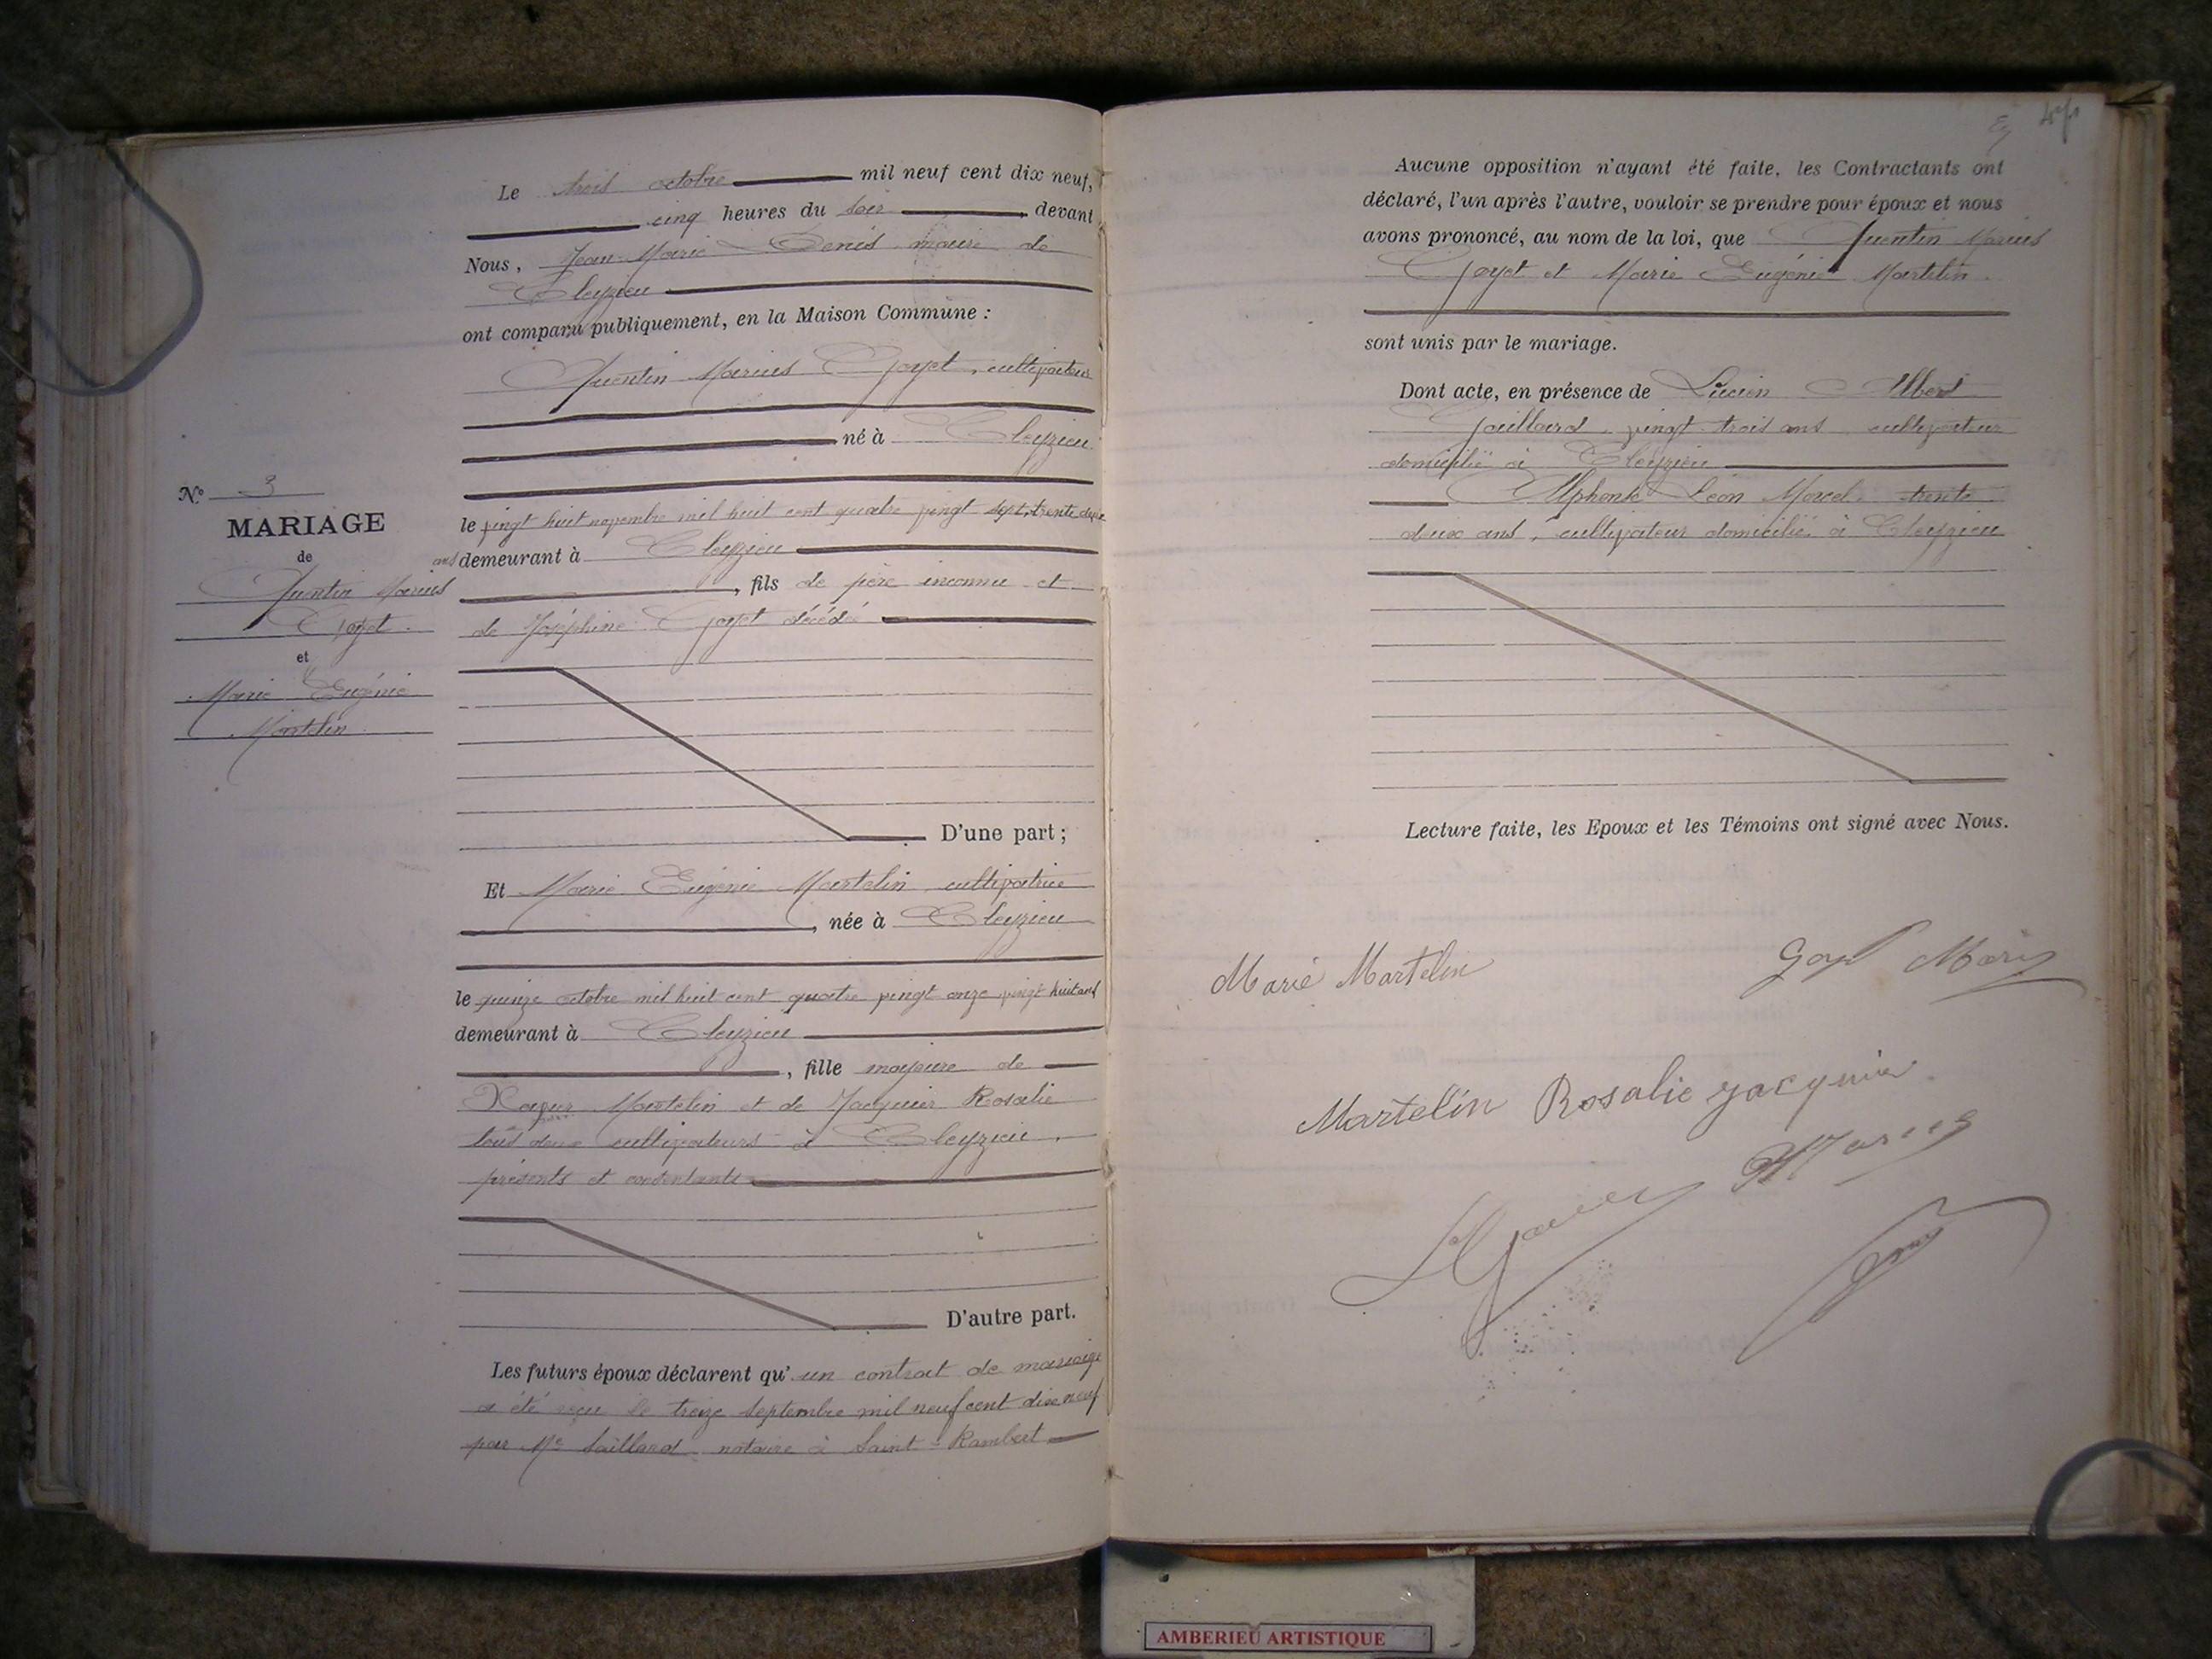 Le trois octobre mil neuf cent dix neuf,
cinq heures du soir devant
Nous, Jean-Marie Denis maire de
Cleyzieu
ont comparu publiquement, en la Maison Commune :
Quentin Marius Goyet, cultivateur
né à Cleyzieu
le vingt huit novembre mil huit cent quatre vingt sept, trente deux
ans demeurant à Cleyzieu
, fils de père inconnu et
de Joséphine Goyet décédée
D'une part ;
Et Marie Eugénie Martelin, cultivatrice
, née à Cleyzieu
le quinze octobre mil huit cent quatre vingt onze vingt huit ans
demeurant à Cleyzieu
, fille majeure de
Martelin et de Jacquier Rosalie
tous deux cultivateurs à Cleyzieu,
présents et consentants
D'autre part.
Les futurs époux déclarent qu'un contrat de mariage
a été reçu le treize septembre mil neuf cent dix neuf
par Me Saillard notaire à Saint-Rambert
N° 3
MARIAGE
de
Quentin Marius
Goyet
et
Marie Eugénie
Martelin
Aucune opposition n'ayant été faite, les Contractants ont
déclaré, l'un après l'autre, vouloir se prendre pour époux et nous
avons prononcé, au nom de la loi, que Quentin Marius
Goyet et Marie Eugénie Martelin
sont unis par le mariage.
Dont acte, en présence de Lucien Albert
Gaillard, vingt trois ans cultivateur
domicilié à Cleyzieu
Alphonse Léon Marcel trente
deux ans, cultivateur domicilié à Cleyzieu
Lecture faite, les Epoux et les Témoins ont signé avec Nous.
Marie Martelin
Goyet Marius
Martelin Rosalie Jacquier
AMBERIEU ARTISTIQUE